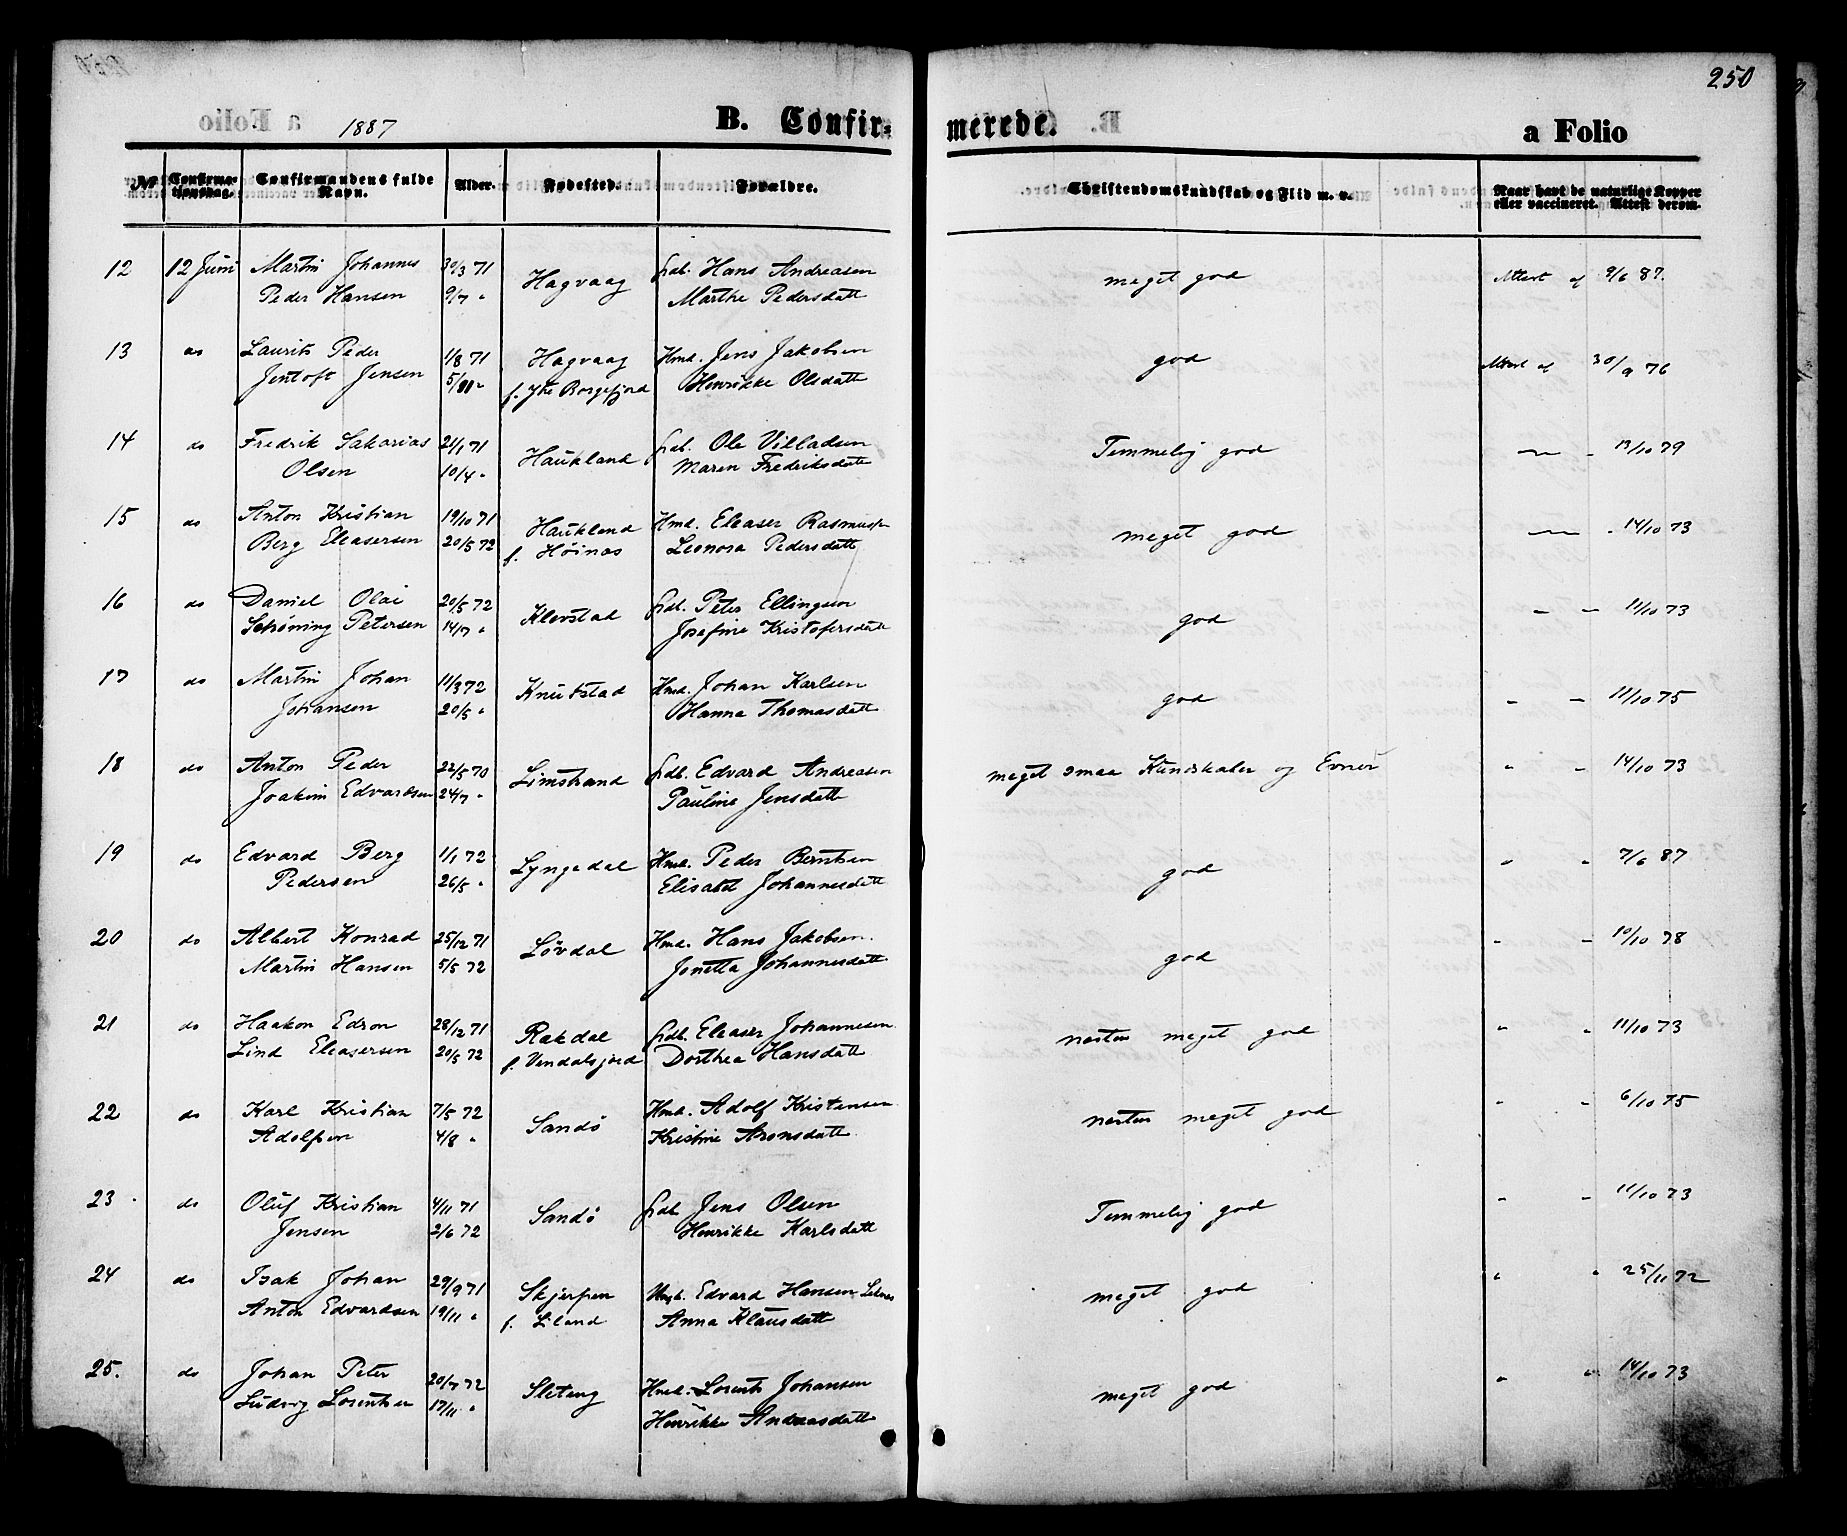 250
a Folio 1887 B. Confir- merede. a Folio
№ Confirma-tionsdag. Confirmandens fulde Navn. Alder. Fødested. Forældre. Christendomskundskab og Flid m. v. Naar havt de naturlige Kopper eller vaccineret. Attest derom.
12 12 Juni Martin Johannes 30/3 71 Hagvaag Grdb. Hans Andreasen meget god Attest af 9/6 87.
Peder Hansen 9/7 " Marthe Pedersdatt
13 do Laurits Peder 1/8 71 Hagvaag Hmd. Jens Jakobsen god Attest af 30/9 76
Jentoft Jensen f. Ytre Borgefjord Henrikke Olsdatt
14 do Fredrik Sakarias 21/1 71 Haukland Grdb. Ole Villadsen Temmelig god — - 13/10 79
Olsen 10/4 " Maren Fredriksdatt
15 do Anton Kristian 19/10 71 Haukland Hmd. Eleaser Rasmuss meget god — - 14/10 73
Berg Eleasersen 20/5 72 f. Høinas Leonora Pedersdatt
16 do Daniel Olai 20/5 72 Klevstad Grdb. Peter Ellingsen god - - 11/10 73
Schøning Petersen 14/7 " Josefine Kristofersdatt
17 do Martin Johan 11/3 72 Knutstad Hmd. Johan Karlsen god - - 11/10 75
Johansen 20/5 " Hanna Thomasdatt
18 do Anton Peder 22/5 70 Limstrand Grdb. Edvard Andreasen meget smaa Kundskaber og Evner " - 14/10 73
Joakim Edvardsen 24/7 " Pauline Jensdatt
19 do Edvard Berg 1/1 72 Lyngedal Hmd. Peder Berntsen god " " 7/6 87
Pedersen 26/5 " Elisabet Johannesdatt
20 do Albert Konrad 25/12 71 Løvdal Hmd. Hans Jakobsen. god " - 10/10 78
Martin Hansen 5/5 72 Jonetta Johannesdatt
21 do Haakon Edron 28/12 71 Rakdal Grdb. Eleaser Johannesen nesten meget god " " 11/10 73
Lind Eleasersen 20/5 72 f. Vendalsjord Dorthea Hansdatt
22 do Karl Kristian 7/5 72 Sandö Hmd. Adolf Kristensen nesten meget god " - 6/10 75
Adolfsen 4/8 " Kristine Aronsdatt
23 do Oluf Kristian 4/11 71 Sandö Grdb Jens Olsen Temmelig god " - 11/10 73
Jensen 2/6 72 Henrikke Karlsdatt
24 do Isak Johan 29/9 71 Skjerpen Edvard Hansen Leknes meget god " " 25/11 72
Anton Edvardsen 19/11 " f. Liland Anna Klausdatt
25. do Johan Peter 20/7 72 Sleteng Hmd. Lorents Johansen meget god " " 14/10 73
Ludvig Lorentsen 17/11 " Henrikke Andreasdatt